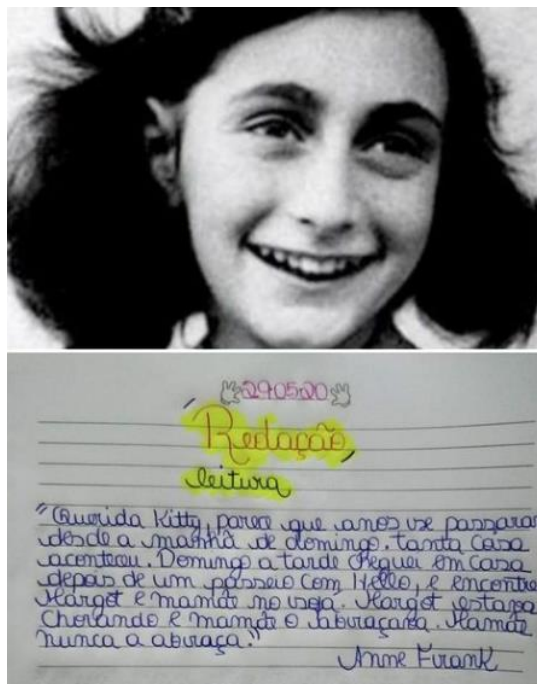 290520
Redação
leitura
"Querida Kitty, parece que anos se passaram
desde a manhã de domingo. tanta Coisa
aconteceu. Domingo a tarde cheguei em casa
depois de um passeio com Hello, e encontre
Margot e mamãe no sofá. Margot estava
Chorando e mamãe a abraçava. Mamãe
nunca a abraça."
Anne Frank